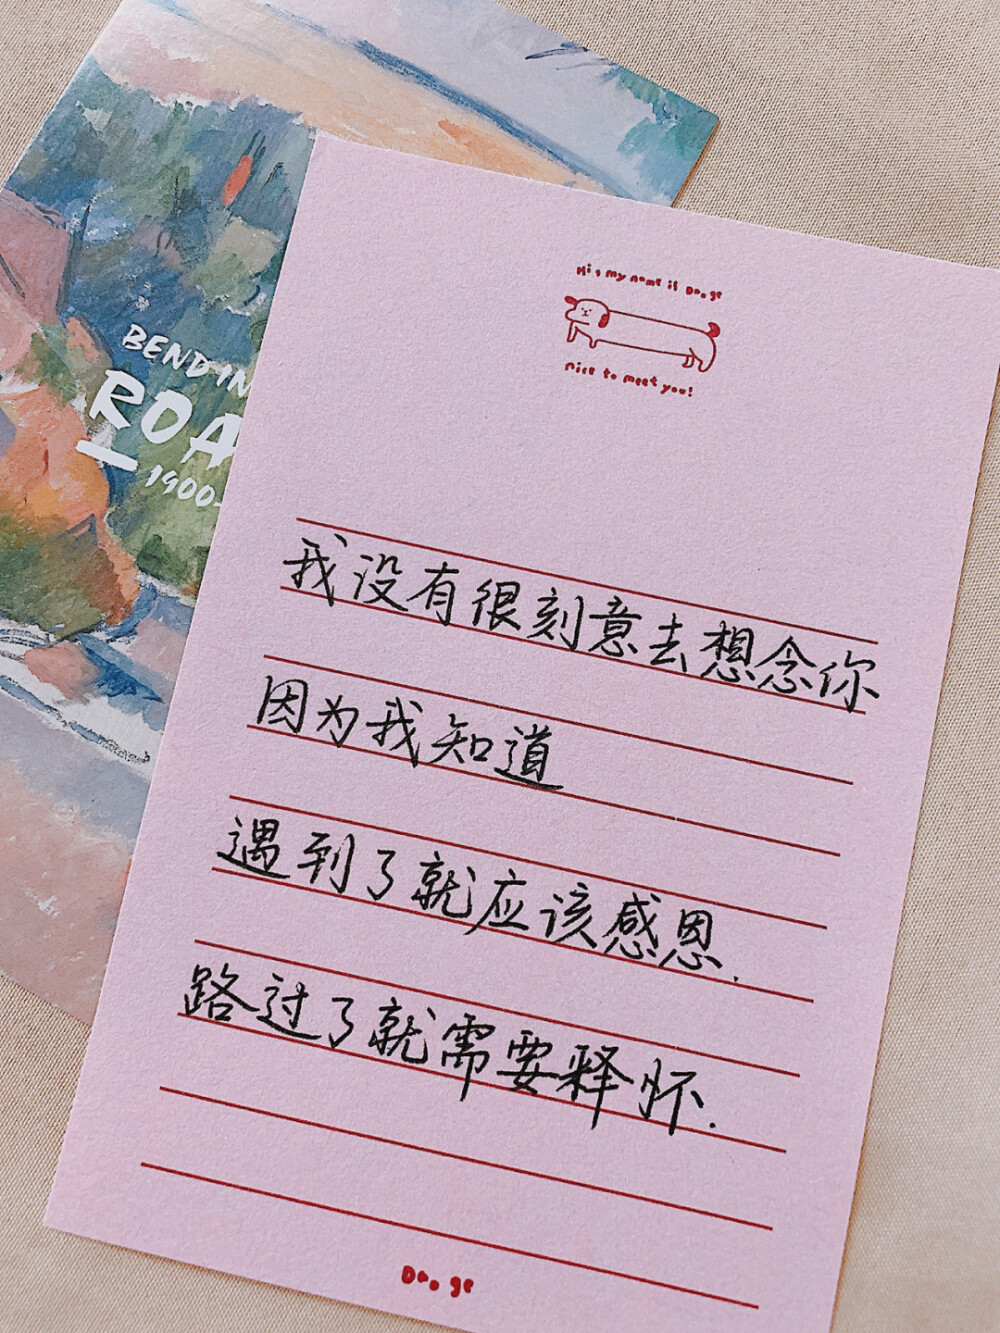 BENDIN
ROA
1900-
Hi, my name is Dooge
nice to meet you!
我没有很刻意去想念你
因为我知道
遇到了就应该感恩.
路过了就需要释怀.
Dooge